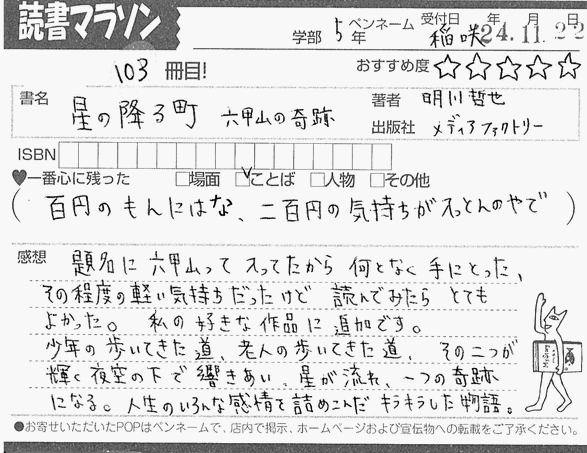 読書マラソン
学部 5年 ペンネーム 稲咲 受付日 年 月 日 24.11.22
103 冊目! おすすめ度 ☆☆☆☆☆
書名 星の降る町 六甲山の奇跡 著者 明川哲也
出版社 メディアファクトリー
ISBN
♥一番心に残った □場面 ☑ことば □人物 □その他
(百円のもんにはな、二百円の気持ちが入っとんのやで)
感想 題名に六甲山って入ってたから何となく手にとった、
その程度の軽い気持ちだったけど 読んでみたら とても
よかった。 私の好きな作品に追加です。
少年の歩いてきた道、老人の歩いてきた道、その二つが
輝く夜空の下で響きあい、星が流れ、一つの奇跡
になる。人生のいろんな感情を詰めこんだ キラキラした物語。
●お寄せいただいたPOPはペンネームで、店内で掲示、ホームページおよび宣伝物への転載をご了承ください。